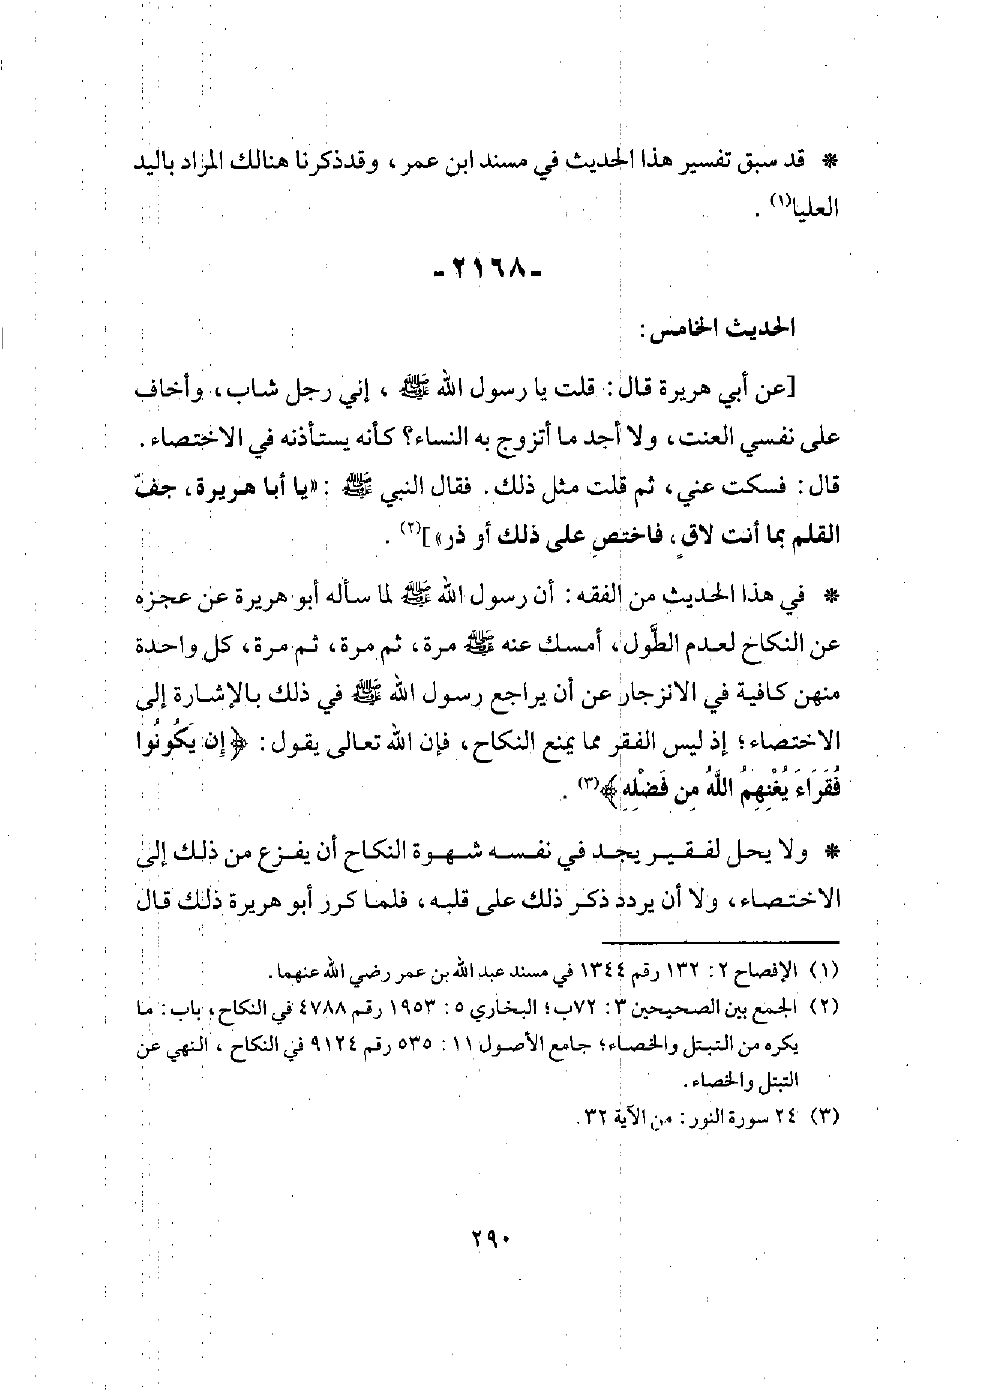 * قد سبق تفسير هذا الحديث في مسند ابن عمر، وقدذكرنا هنالك المراد باليد
العليا(١) .
-٢١٦٨-
الحديث الخامس:
[عن أبي هريرة قال: قلت يا رسول الله ﷺ ، إني رجل شاب، وأخاف
على نفسي العنت، ولا أجد ما أتزوج به النساء؟ كأنه يستأذنه في الاختصاء.
قال: فسكت عني، ثم قلت مثل ذلك. فقال النبي ﷺ : «يا أبا هريرة، جفّ
القلم بما أنت لاقٍ، فاختصِ على ذلك أو ذر»](٢) .
* في هذا الحديث من الفقه: أن رسول الله ﷺ لما سأله أبو هريرة عن عجزه
عن النكاح لعدم الطَّول، أمسك عنه ﷺ مرة، ثم مرة، ثم مرة، كل واحدة
منهن كافية في الانزجار عن أن يراجع رسول الله ﷺ في ذلك بالإشارة إلى
الاختصاء؛ إذ ليس الفقر مما يمنع النكاح، فإن الله تعالى يقول: ﴿إِن يَكُونُوا
فُقَرَاءَ يُغْنِهِمُ اللَّهُ مِن فَضْلِهِ﴾(٣) .
* ولا يحل لفقير يجد في نفسه شهوة النكاح أن يفزع من ذلك إلى
الاختصاء، ولا أن يردد ذكر ذلك على قلبه، فلما كرر أبو هريرة ذلك قال
(١) الإفصاح ٢: ١٣٢ رقم ١٣٤٤ في مسند عبد الله بن عمر رضي الله عنهما.
(٢) الجمع بين الصحيحين ٣: ٧٢ب؛ البخاري ٥: ١٩٥٣ رقم ٤٧٨٨ في النكاح، باب: ما
يكره من التبتل والخصاء؛ جامع الأصول ١١: ٥٣٥ رقم ٩١٢٤ في النكاح ، النهي عن
التبتل والخصاء.
(٣) ٢٤ سورة النور: من الآية ٣٢.
٢٩٠